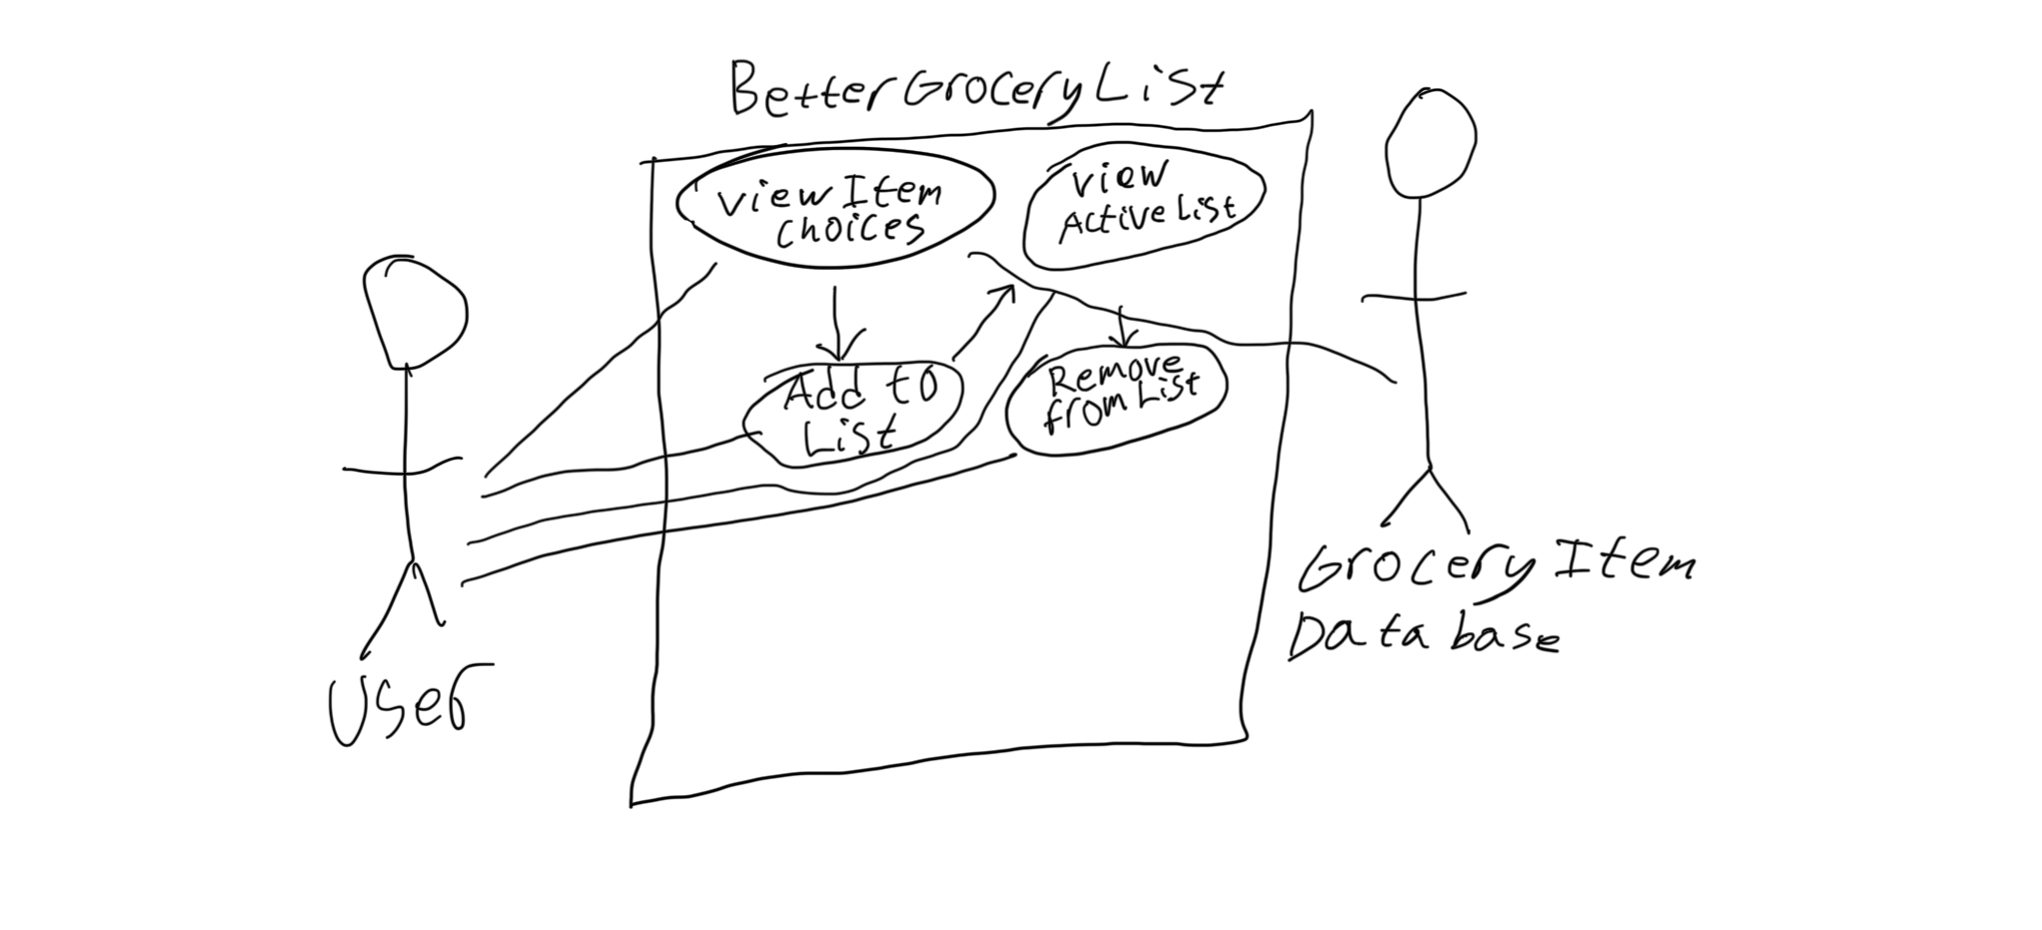 BetterGroceryList
view Item
choices
view
Active List
Add to
List
Remove
from List
User
Grocery Item
Database